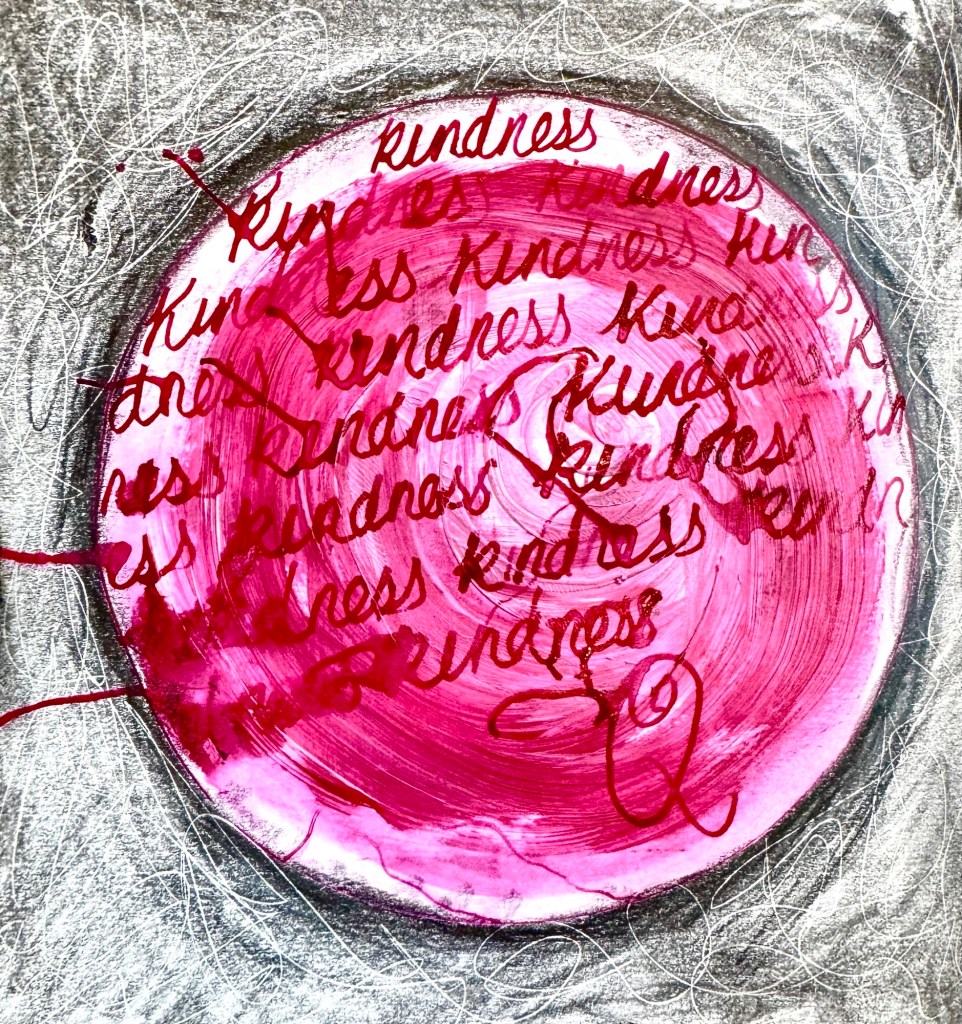 kindness
Kindness kindness
Kindness Kindness kin
dness kindness Kindness
ness kindness Kindness K
ess kindness kindness kin
dness kindness kindn
kindness